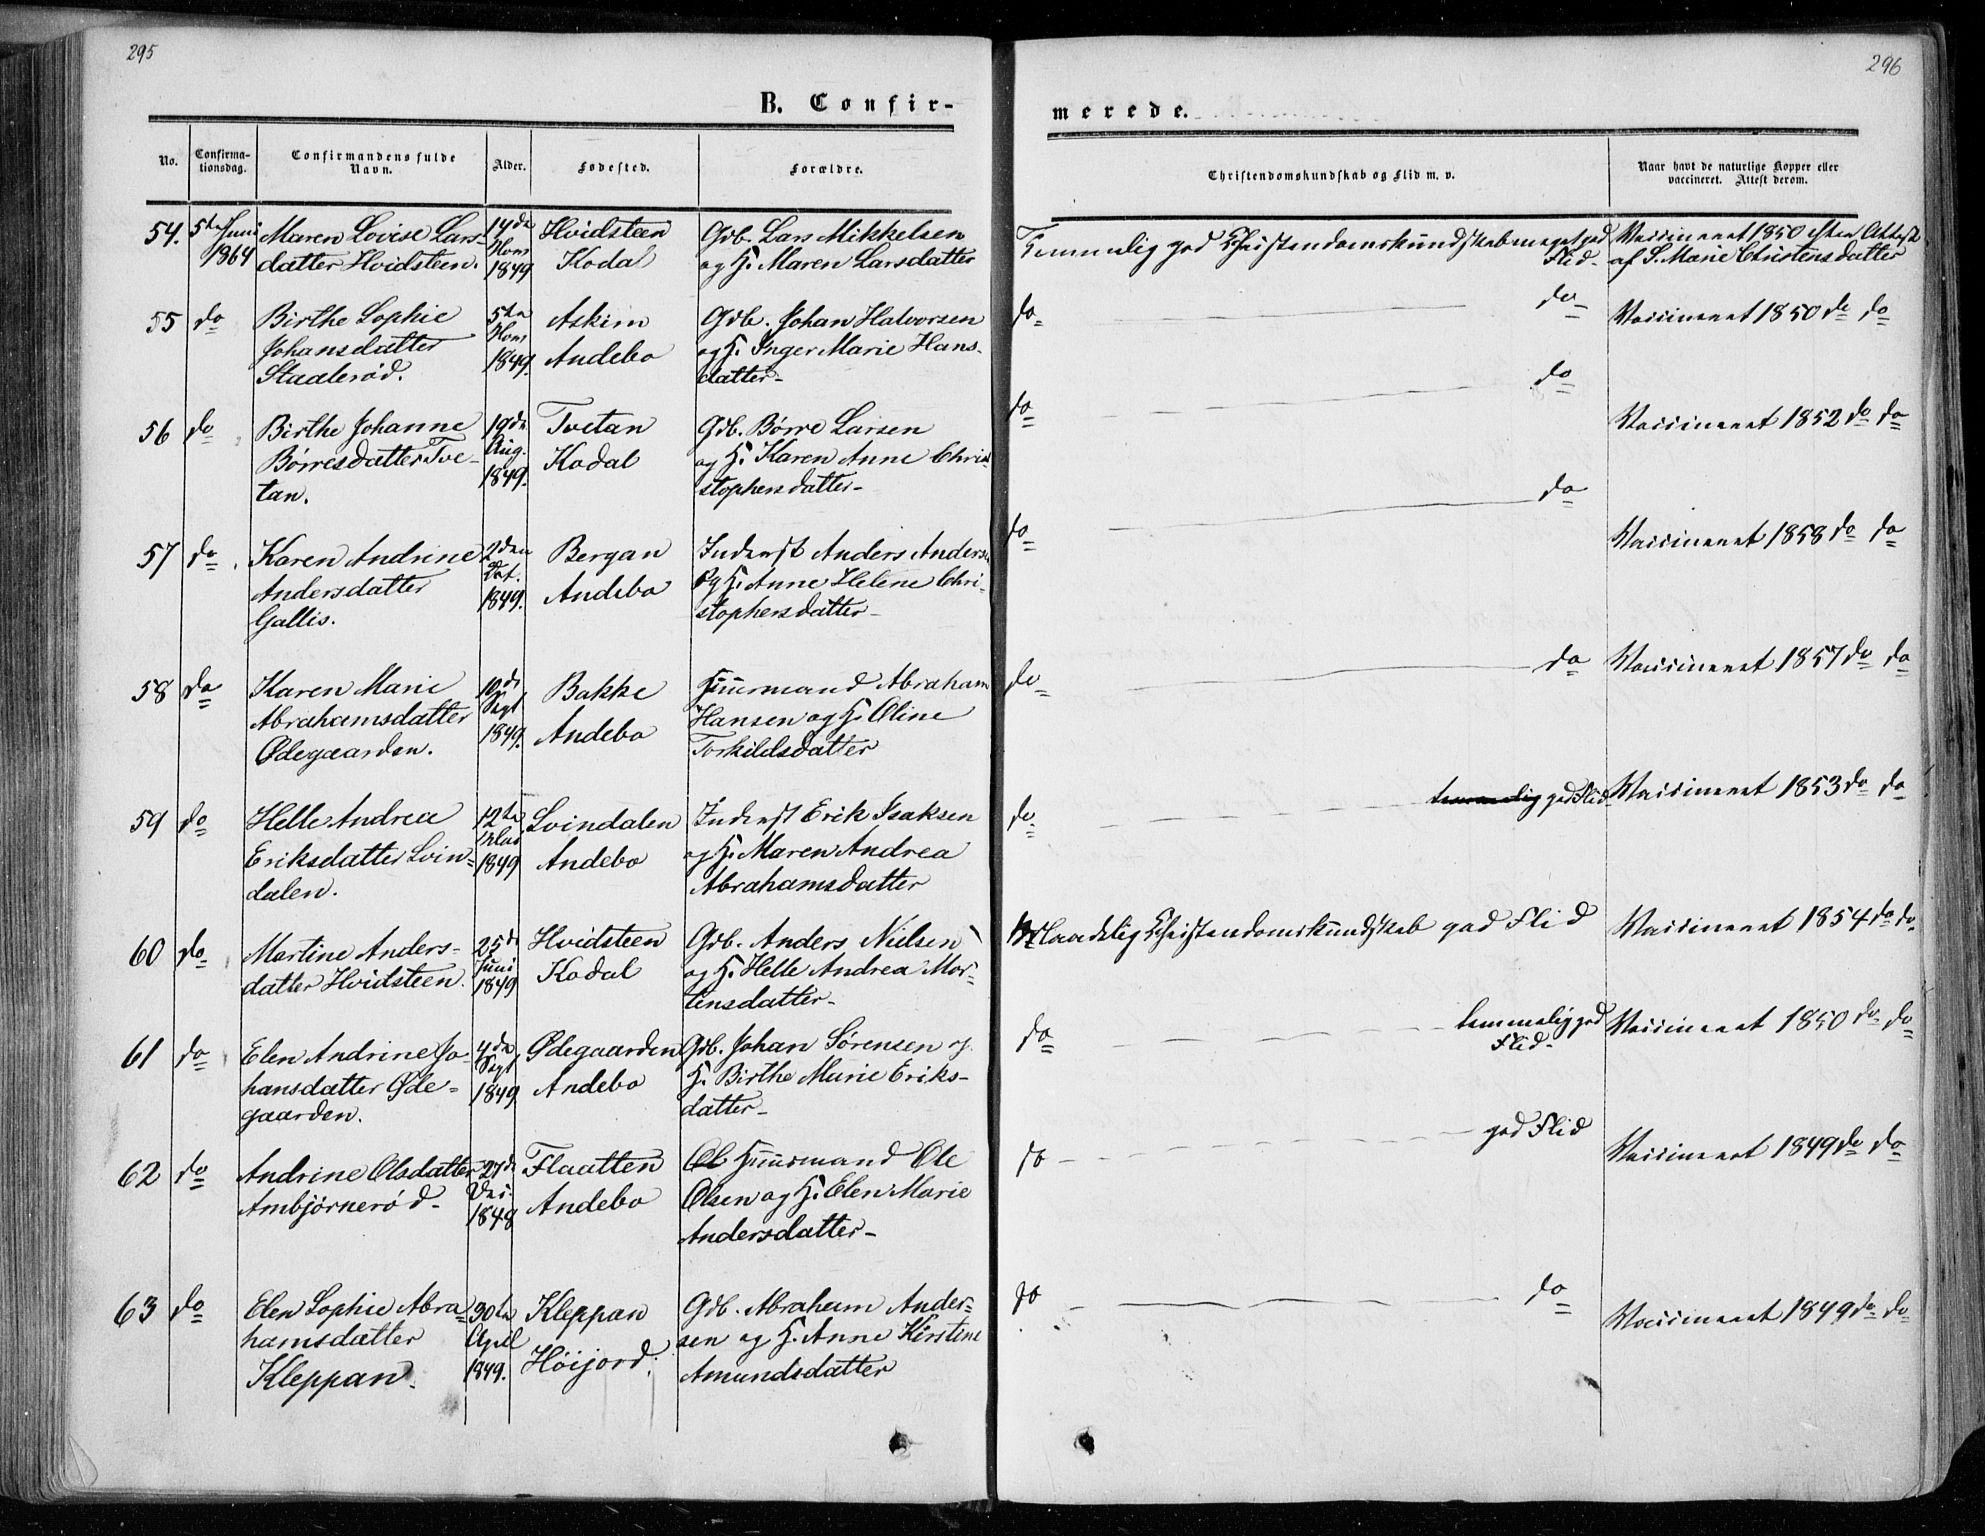 295
296
B. Confir-
merede.
No.
Confirma-
tionsdag.
Confirmandens fulde
Navn.
Alder.
Fødested.
Forældre.
Christendomskundskab og Flid m. v.
Naar havt de naturlige Kopper eller
vaccineret. Attest derom.
54. 5te Juni Maren Lovise Lars- 14de Hvidsteen Gdb. Lars Mikkelsen
1864 datter Hvidsteen. 1849 Kodal og H. Maren Larsdatter
Temmelig god Christendomskundskab meget god
Flid-
Vaccineret 1850 efter Attest
af S. Marie Christensdatter
55 do Birthe Sophie 5te Askim Gdb. Johan Halvorsen
Johansdatter Andebo og H. Inger Marie Hans-
Staalerød. 1849. datter-
do do
Vaccineret 1850 do do
56 do Birthe Johanne 19de Tvetan Gdb. Børre Larsen
Børresdatter Tve- Aug. Kodal og H. Karen Anne Chri-
tan. 1849. stophersdatter-
do do
Vaccineret 1852 do do
57 do Karen Andrine 2den Bergan Inderst Anders Anders
Andersdatter 1849. Andebo og H. Anne Helene Chri-
Gallis. stophersdatter-
do do
Vaccineret 1858 do do
58 do Karen Marie 10de Bakke Huusmand Abraham
Abrahamsdatter Sept Andebo Hansen og H. Oline
Ødegaarden. 1849. Torkildsdatter
do do
Vaccineret 1857 do do
59 do Helle Andrea 12te Svindalen Inderst Erik Isaksen
Eriksdatter Svin- 1849 Andebo og H. Maren Andrea
dalen. Abrahamsdatter
do temmelig god Flid
Vaccineret 1853 do do
60 do Martine Anders- 25de Hvidsteen Gdb. Anders Nielsen
datter Hvidsteen. Juni Kodal og H. Helle Andrea Mor-
1849 tinsdatter-
Maadelig Christendomskundskab god Flid
Vaccineret 1854 do do
61 do Elen Andrine Jo- 4de Ødegaarden Gdb. Johan Sørensen og
hansdatter Øde- Sept Andebo H. Birthe Marie Eriks-
gaarden. 1849 datter-
do temmelig god
Flid-
Vaccineret 1850 do do
62 do Andrine Olsdatter 27de Flaatten Ol Huusmand Ole
Ambjørnerød- 1848 Andebo Olsen og H. Elen Marie
Andersdatter-
do god Flid
Vaccineret 1849 do do
63 do Elen Sophie Abra- 30te Kleppan Gdb. Abraham Ander-
hamsdatter April Høijord. sen og H. Anne Kirstine
Kleppan. 1849. Amundsdatter
do do
Vaccineret 1849 do do